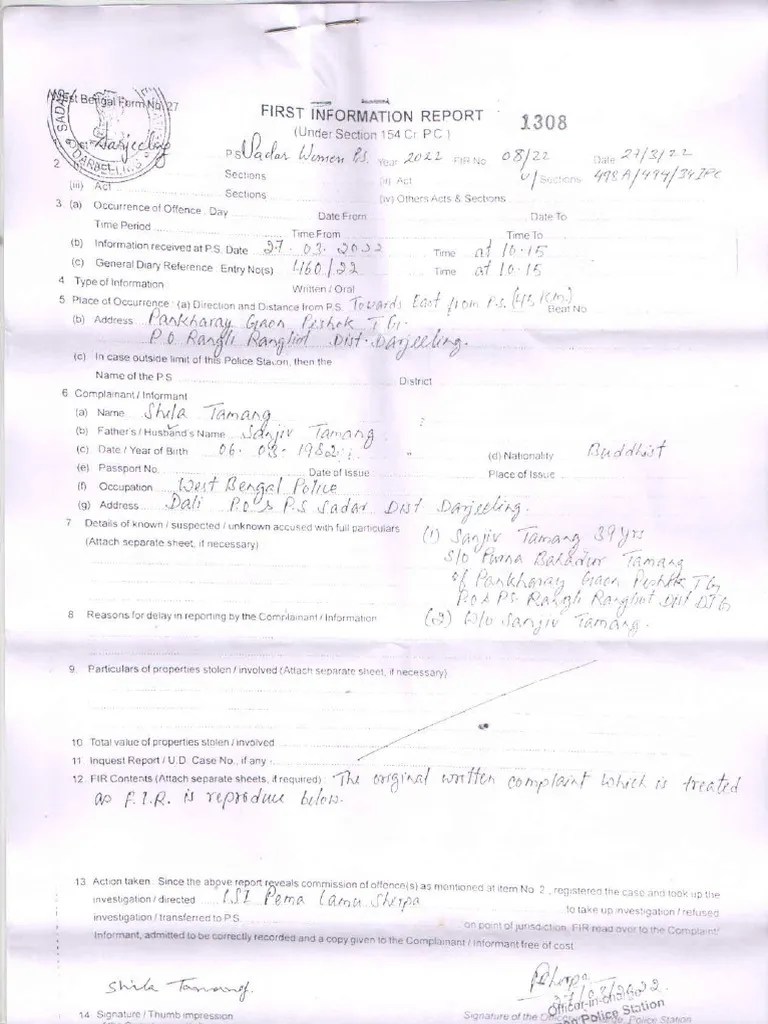 West Bengal Form No. 27
FIRST INFORMATION REPORT
1308
(Under Section 154 Cr. P.C)
Darjeeling P.S. Sadar Women P.S. Year 2022 FIR No 08/22 Date 27/3/22
2 Sections (ii) Act u/Sections 498A/494/34 IPC
(iii) Act Sections (iv) Others Acts & Sections
3 (a) Occurrence of Offence : Day Date From Date To
Time Period Time From Time To
(b) Information received at P.S. Date 27. 03. 2022 Time at 10.15
(c) General Diary Reference Entry No(s) 460/22 Time at 10.15
4 Type of Information Written / Oral
5 Place of Occurrence : (a) Direction and Distance from P.S. Towards East from P.S. (45 Km) Beat No
(b) Address Pankharay Gaon Peshok T.G.
P.O Rangli Rangliot Dist. Darjeeling.
(c) In case outside limit of this Police Station, then the
Name of the P.S District
6 Complainant / Informant
(a) Name Shila Tamang
(b) Father's / Husband's Name Sanjiv Tamang
(c) Date / Year of Birth 06. 03. 1982 (d) Nationality Buddhist
(e) Passport No. Date of Issue Place of Issue
(f) Occupation West Bengal Police
(g) Address Dali P.O & P.S Sadar Dist Darjeeling.
7 Details of known / suspected / unknown accused with full particulars (1) Sanjiv Tamang 39 yrs
(Attach separate sheet, if necessary) S/o Purna Bahadur Tamang
of Pankharay Gaon Peshok T.G
P.O & P.S. Rangli Rangliot Dist DJG
8 Reasons for delay in reporting by the Complainant / Information (2) W/o Sanjiv Tamang.
9. Particulars of properties stolen / involved (Attach separate sheet, if necessary)
10 Total value of properties stolen / involved
11 Inquest Report / U.D. Case No., if any
12 FIR Contents (Attach separate sheets, if required) : The original written complaint which is treated
as F.I.R. is reproduce below.
13 Action taken : Since the above report reveals commission of offence(s) as mentioned at item No. 2 , registered the case and took up the
investigation / directed LSI Pema Lamu Sherpa to take up investigation / refused
investigation / transferred to P.S. on point of jurisdiction. FIR read over to the Complaint/
Informant, admitted to be correctly recorded and a copy given to the Complainant / Informant free of cost.
Shila Tamang. PSherpa
27/03/2022
Officer-in-charge
14 Signature / Thumb impression Signature of the Police Station